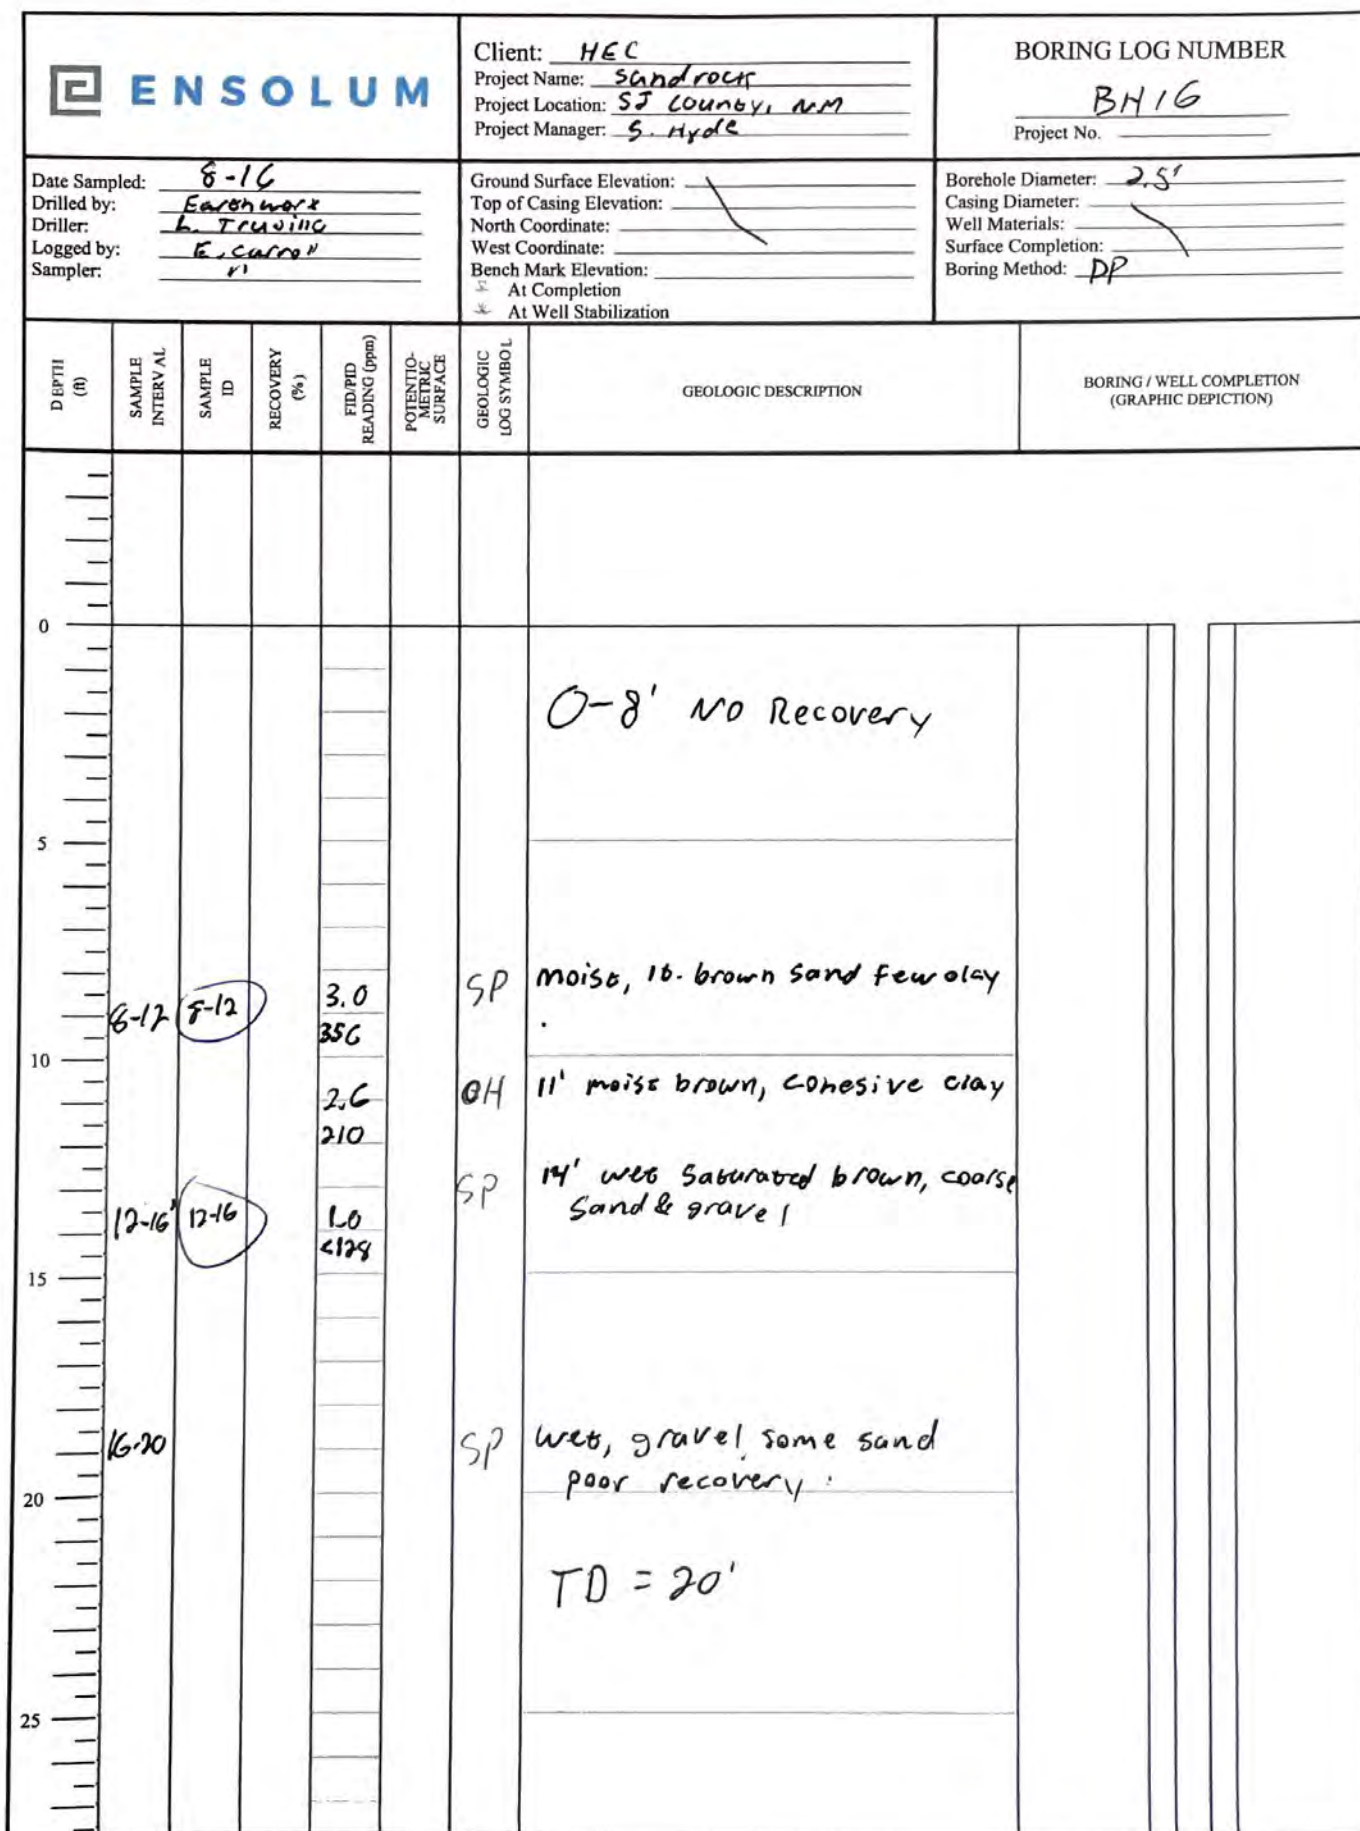 ENSOLUM
Client: HEC
Project Name: Sandrock
Project Location: SJ County, NM
Project Manager: S. Hyde
BORING LOG NUMBER
BH16
Project No.
Date Sampled: 8-16
Drilled by: Earthworx
Driller: L. Trujillo
Logged by: E. Carroll
Sampler: "
Ground Surface Elevation:
Top of Casing Elevation:
North Coordinate:
West Coordinate:
Bench Mark Elevation:
At Completion
At Well Stabilization
Borehole Diameter: 2.5'
Casing Diameter:
Well Materials:
Surface Completion:
Boring Method: DP
DEPTH (ft)
SAMPLE INTERVAL
SAMPLE ID
RECOVERY (%)
FID/PID READING (ppm)
POTENTIO-METRIC SURFACE
GEOLOGIC LOG SYMBOL
GEOLOGIC DESCRIPTION
BORING / WELL COMPLETION
(GRAPHIC DEPICTION)
0
0-8' No Recovery
5
SP moist, lt. brown sand few clay
8-12 8-12 3.0
356
10
CH 11' moist brown, cohesive clay
2.6
210
SP 14' wet saturated brown, coarse
sand & gravel
12-16' 12-16 1.0
<128
15
16-20 SP wet, gravel some sand
poor recovery
20
TD = 20'
25